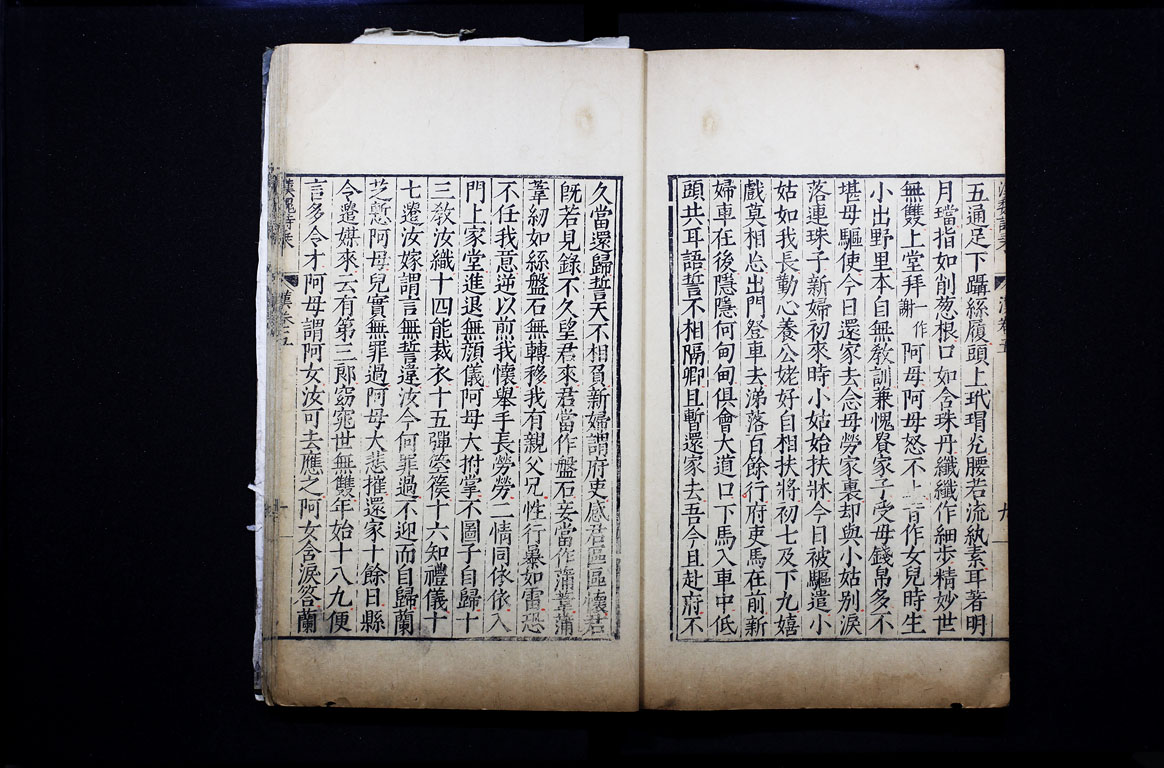 五通足下躡絲履頭上玳瑁光腰若流紈素耳著明
月璫指如削葱根口如含珠丹纖纖作細步精妙世
無雙上堂拜一作謝阿母阿母怒不止昔作女兒時生
小出野里本自無敎訓兼愧貴家子受母錢帛多不
堪母驅使今日還家去念母勞家裏却與小姑別淚
落連珠子新婦初來時小姑始扶牀今日被驅遣小
姑如我長勤心養公姥好自相扶將初七及下九嬉
戲莫相忘出門登車去涕落百餘行府吏馬在前新
婦車在後隱隱何甸甸俱會大道口下馬入車中低
頭共耳語誓不相隔卿且暫還家去吾今且赴府不
久當還歸誓天不相負新婦謂府吏感君區區懷君
旣若見錄不久望君來君當作盤石妾當作蒲葦蒲
葦紉如絲盤石無轉移我有親父兄性行暴如雷恐
不任我意逆以煎我懷舉手長勞勞二情同依依入
門上家堂進退無顔儀阿母大拊掌不圖子自歸十
三敎汝織十四能裁衣十五彈箜篌十六知禮儀十
七遣汝嫁謂言無誓違汝今何罪過不迎而自歸蘭
芝慙阿母兒實無罪過阿母大悲摧還家十餘日縣
令遣媒來云有第三郎窈窕世無雙年始十八九便
言多令才阿母謂阿女汝可去應之阿女含淚答蘭
漢魏詩乘 漢卷之五